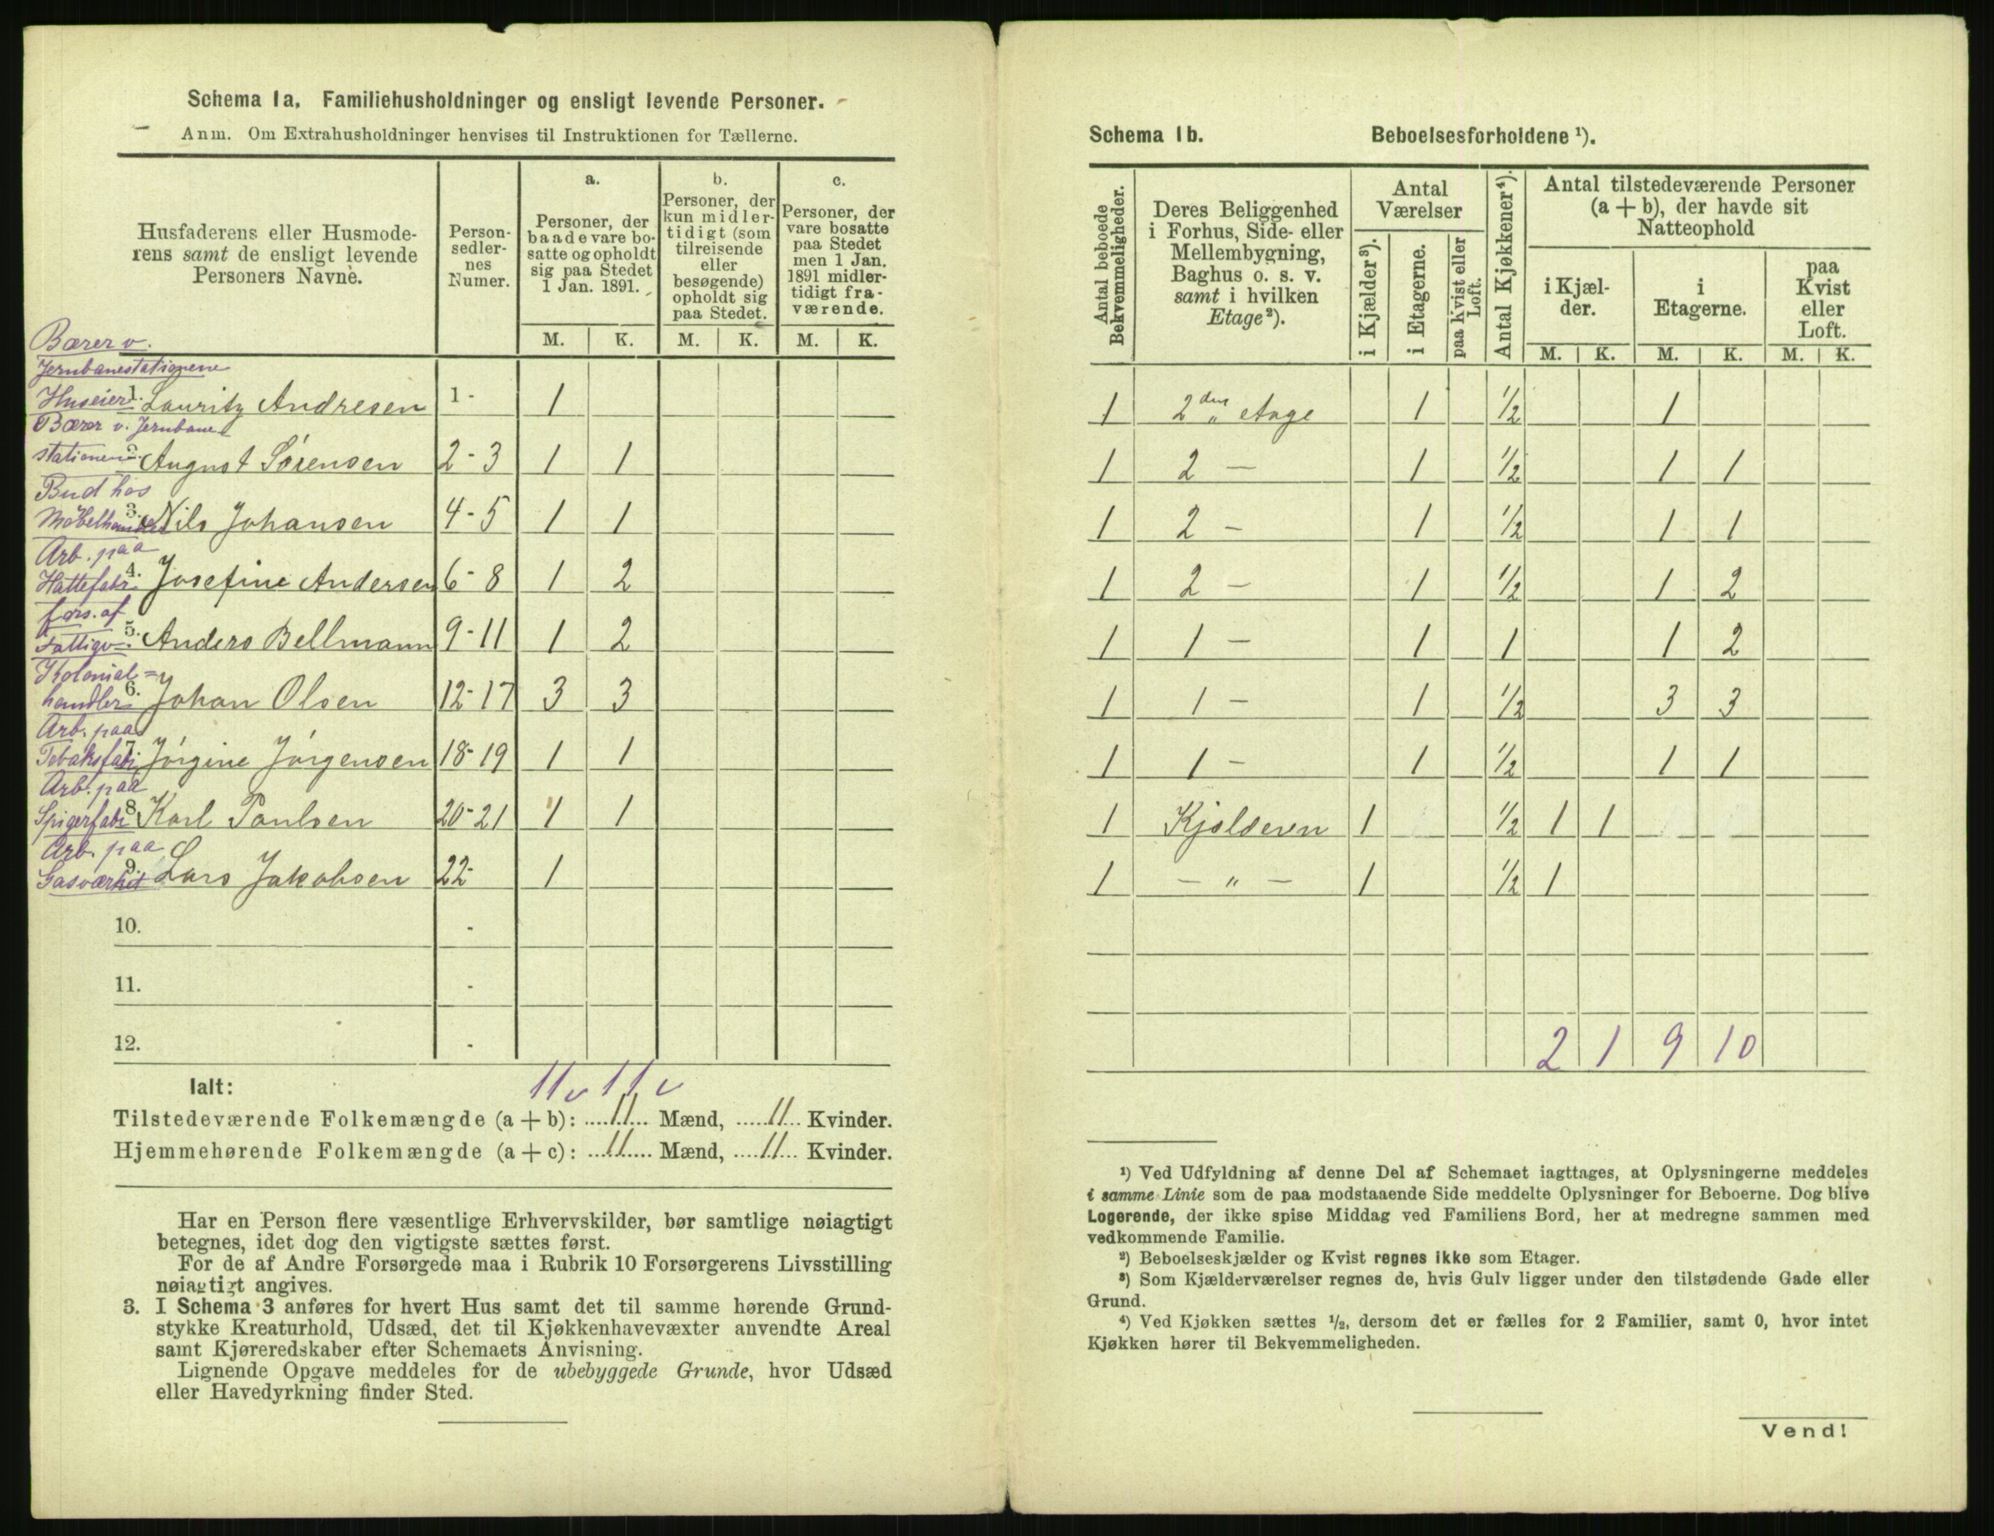 Schema 1a. Familiehusholdninger og ensligt levende Personer.
Anm. Om Extrahusholdninger henvises til Instruktionen for Tællerne.
Husfaderens eller Husmode-
rens samt de ensligt levende
Personers Navne.
Person-
sedler-
nes
Numer.
a.
Personer, der
baade vare bo-
satte og opholdt
sig paa Stedet
1 Jan. 1891.
b.
Personer, der
kun midler-
tidigt (som
tilreisende
eller
besøgende)
opholdt sig
paa Stedet.
c.
Personer, der
vare bosatte
paa Stedet
men 1 Jan.
1891 midler-
tidigt fra-
værende.
M. K. M. K. M. K.
Bærer v.
Jernbanestationene
Huseier 1. Lauritz Andresen 1- 1
Bærer v. Jernbane
stationen 2. August Sörensen 2-3 1 1
Bud hos
Møbelhandler 3. Nils Johansen 4-5 1 1
Arb. paa
Hattefabr 4. Josefine Andersen 6-8 1 2
fors. af
Fattigv 5. Anders Bellmann 9-11 1 2
Kolonial=
handler 6. Johan Olsen 12-17 3 3
Arb. paa
Tobaksfabr 7. Jörgine Jörgensen 18-19 1 1
Arb. paa
Spigerfabr 8. Karl Paulsen 20-21 1 1
Arb. paa
Gasværket 9. Lars Jakobsen 22- 1
10. -
11. -
12. -
Ialt: 11 v 11 v
Tilstedeværende Folkemængde (a + b): 11 Mænd, 11 Kvinder.
Hjemmehørende Folkemængde (a + c): 11 Mænd, 11 Kvinder.
Har en Person flere væsentlige Erhvervskilder, bør samtlige nøiagtigt
betegnes, idet dog den vigtigste sættes først.
For de af Andre Forsørgede maa i Rubrik 10 Forsørgerens Livsstilling
nøiagtigt angives.
3. I Schema 3 anføres for hvert Hus samt det til samme hørende Grund-
stykke Kreaturhold, Udsæd, det til Kjøkkenhavevæxter anvendte Areal
samt Kjøreredskaber efter Schemaets Anvisning.
Lignende Opgave meddeles for de ubebyggede Grunde, hvor Udsæd
eller Havedyrkning finder Sted.
Schema 1b. Beboelsesforholdene ¹).
Antal beboede
Bekvemmeligheder.
Deres Beliggenhed
i Forhus, Side- eller
Mellembygning,
Baghus o. s. v.
samt i hvilken
Etage²).
Antal
Værelser
i Kjælder³).
i Etagerne.
paa Kvist eller
Loft.
Antal Kjøkkener⁴).
Antal tilstedeværende Personer
(a + b), der havde sit
Natteophold
i Kjæl-
der.
i
Etagerne.
paa
Kvist
eller
Loft.
M. K. M. K. M. K.
1 2den " etage 1 ½ 1
1 2 — 1 ½ 1 1
1 2 - 1 ½ 1 1
1 2 - 1 ½ 1 2
1 1 - 1 1 1 2
1 1 - 1 ½ 3 3
1 1 - 1 ½ 1 1
1 Kjælderen 1 ½ 1 1
1 — " — 1 ½ 1
2 1 9 10
¹) Ved Udfyldning af denne Del af Schemaet iagttages, at Oplysningerne meddeles
i samme Linie som de paa modstaaende Side meddelte Oplysninger for Beboerne. Dog blive
Logerende, der ikke spise Middag ved Familiens Bord, her at medregne sammen med
vedkommende Familie.
²) Beboelseskjælder og Kvist regnes ikke som Etager.
³) Som Kjælderværelser regnes de, hvis Gulv ligger under den tilstødende Gade eller
Grund.
⁴) Ved Kjøkken sættes ½, dersom det er fælles for 2 Familier, samt 0, hvor intet
Kjøkken hører til Bekvemmeligheden.
Vend!